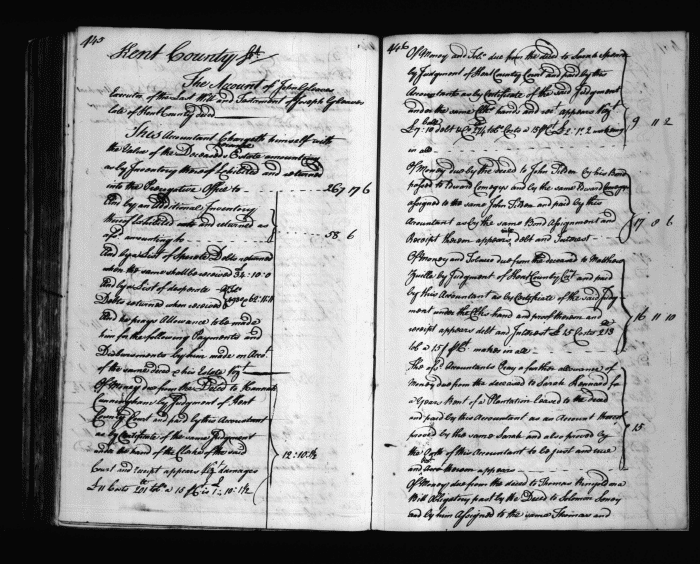 445
Kent County Sct
The Account of John Gleaves
Executor of the Last Will and Testament of Joseph Gleaves
late of Kent County deced
This Accountant Chargeth himself with
the Value of the Deceaseds Estate amounting
as by Inventory thereof Exhibited and returned
into the Perogative Office to 267 17 6
And by an Additional Inventory
thereof Exhibited and returned as
afd amounting to 58 6
And by a List of Sperate Debts returned
when the same shall be received 34:10:0
and by a List of desperate
Debts returned when received
And he prays Allowance to be made
him for the following Payments and
Disbursments by him made on Acct
of the same deced & his Estate Vizt
Of Money due from the Deced to Hannah
Cunningham by Judgment of Kent
County Court and paid by this Accountant
as by Certificate of the same Judgment
under the hand of the Clerk of the said
Court and receipt appears Viz damages
£11 Costs 201 lbs a 15 1:10:1½ 12:10:1½
446
Of Money and Tobo due from the deced to Sarah
by Judgment of Kent County Court and paid by this
Accountant as by Certificate of the said Judgment
under the same Clks hand and rect appears Vizt
£7:10 debt Costs a 15 £2:1:2 making
in all 9 11 2
Of Money due by the deced to John Tilden by his Bond
passed to Edward Comegys and by the same Edward Comegys
assigned to the same John Tilden and paid by this
Accountant as by the same Bond Assignment and
Receipt thereon appears debt and Interest 17 8 6
Of Money and Tobacco due from the deceased to Matthew
by Judgment of Kent County Cot and paid
by this Accountant as by Certificate of the said Judg=
ment under the Clks hand and proof thereon and
receipt appears debt and Interest £15 Costs 213
lbs a 15/ makes in all 16 11 10
The afd Accountants Pray a further allowance of
Money due from the deceased to Sarah Kennard for
a Years Rent of a Plantation leased to the deced
and paid by this Accountant as an Account thereof
proved by the same Sarah and also proved by
the Oath of this Accountant to be just and true
and thereon appears 15
Of Money due from the deced to Thomas Ringgold on a
Bill Obligatory past by the Deced to Solomon
and by him Assigned to the same Thomas and